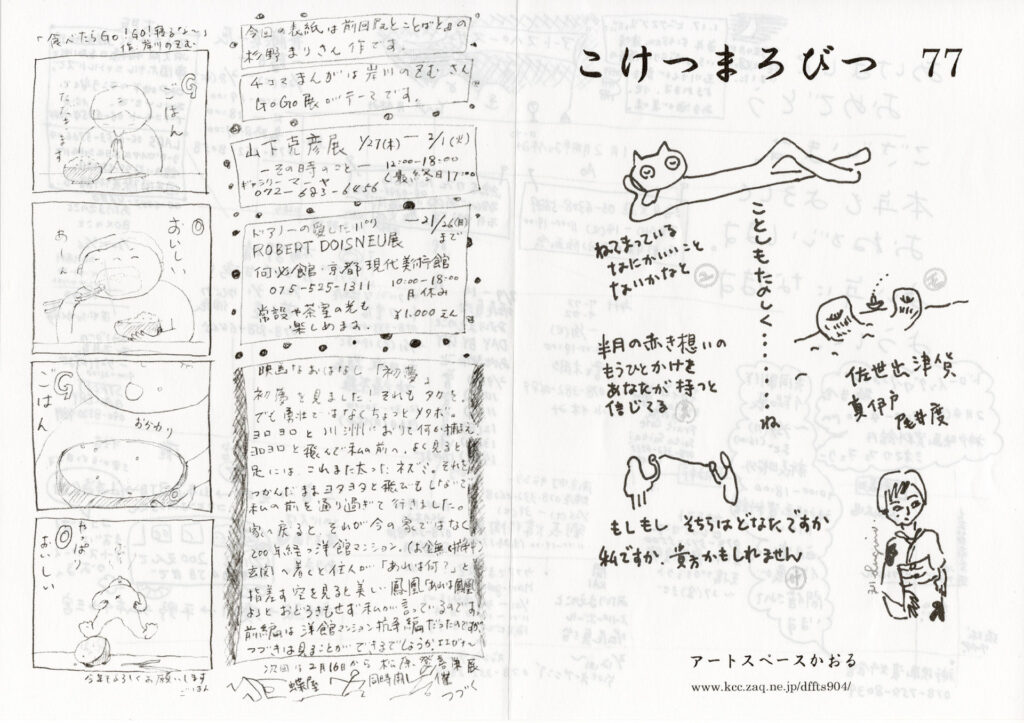 「食べたらGO!GO!寝るな〜」
作 岸川のぞむ
G
ごはん
いただきます
O
おいしい
あーん
G
ごはん
おかわり
O
やっぱり
おいしい
今年もよろしくお願いします
ごはん
今回の表紙は前回『えとことばと』の
杉野まりさん作です.
4コマまんがは岸川のぞむさん
GoGo展がテーマです。
山下克彦展 1/27(木)―2/1(火)
―その時のこと― 12:00-18:00
ギャラリーマーヤ (最終日17:00
072-683-6456
ドアノーの愛したパリ ―21/26(日)
ROBERT DOISNEU展 まで
何必館・京都現代美術館
075-525-1311 10:00-18:00
月休み
常設や茶室の光も ¥1.000えん
楽しめます。
映画なおはなし 「初夢」
初夢を見ました!それもタカを。
でも勇壮ではなくちょっとメタボ。
ヨロヨロと川洲におりて何か捕え
ヨロヨロと飛んで私の前へ。よく見ると
足には、これまた太ったネズミ。それを
つかんだままヨタヨタと飛びもしないで
私の前を通り過ぎて行きました。
家へ戻ると、それが今の家ではなく
200年経つ洋館マンション。
玄関へ着くと住人が「あれは何?」と
指差す空を見ると美しい鳳凰「あれは鳳凰
よ」とおどろきもせず私が言っているのです。
前編は洋館マンション抗争編だったのでが、
つづきは見ることができまでしょうか
次回は2月16日から
蝶屋 同時開催
つづく
こけつまろびつ 77
ことしもたのしく・・・・・・・・ね
ねてまっている
なにかいいこと
ないかなと
半月の赤き想いの
もうひとかけを
あなたが持つと
信じてる
佐世出 津貨
真伊戸
尾井度
もしもし そちらはどなたですか
私ですか、貴方かもしれません
アートスペースかおる
www.kcc.zaq.ne.jp/dffts904/